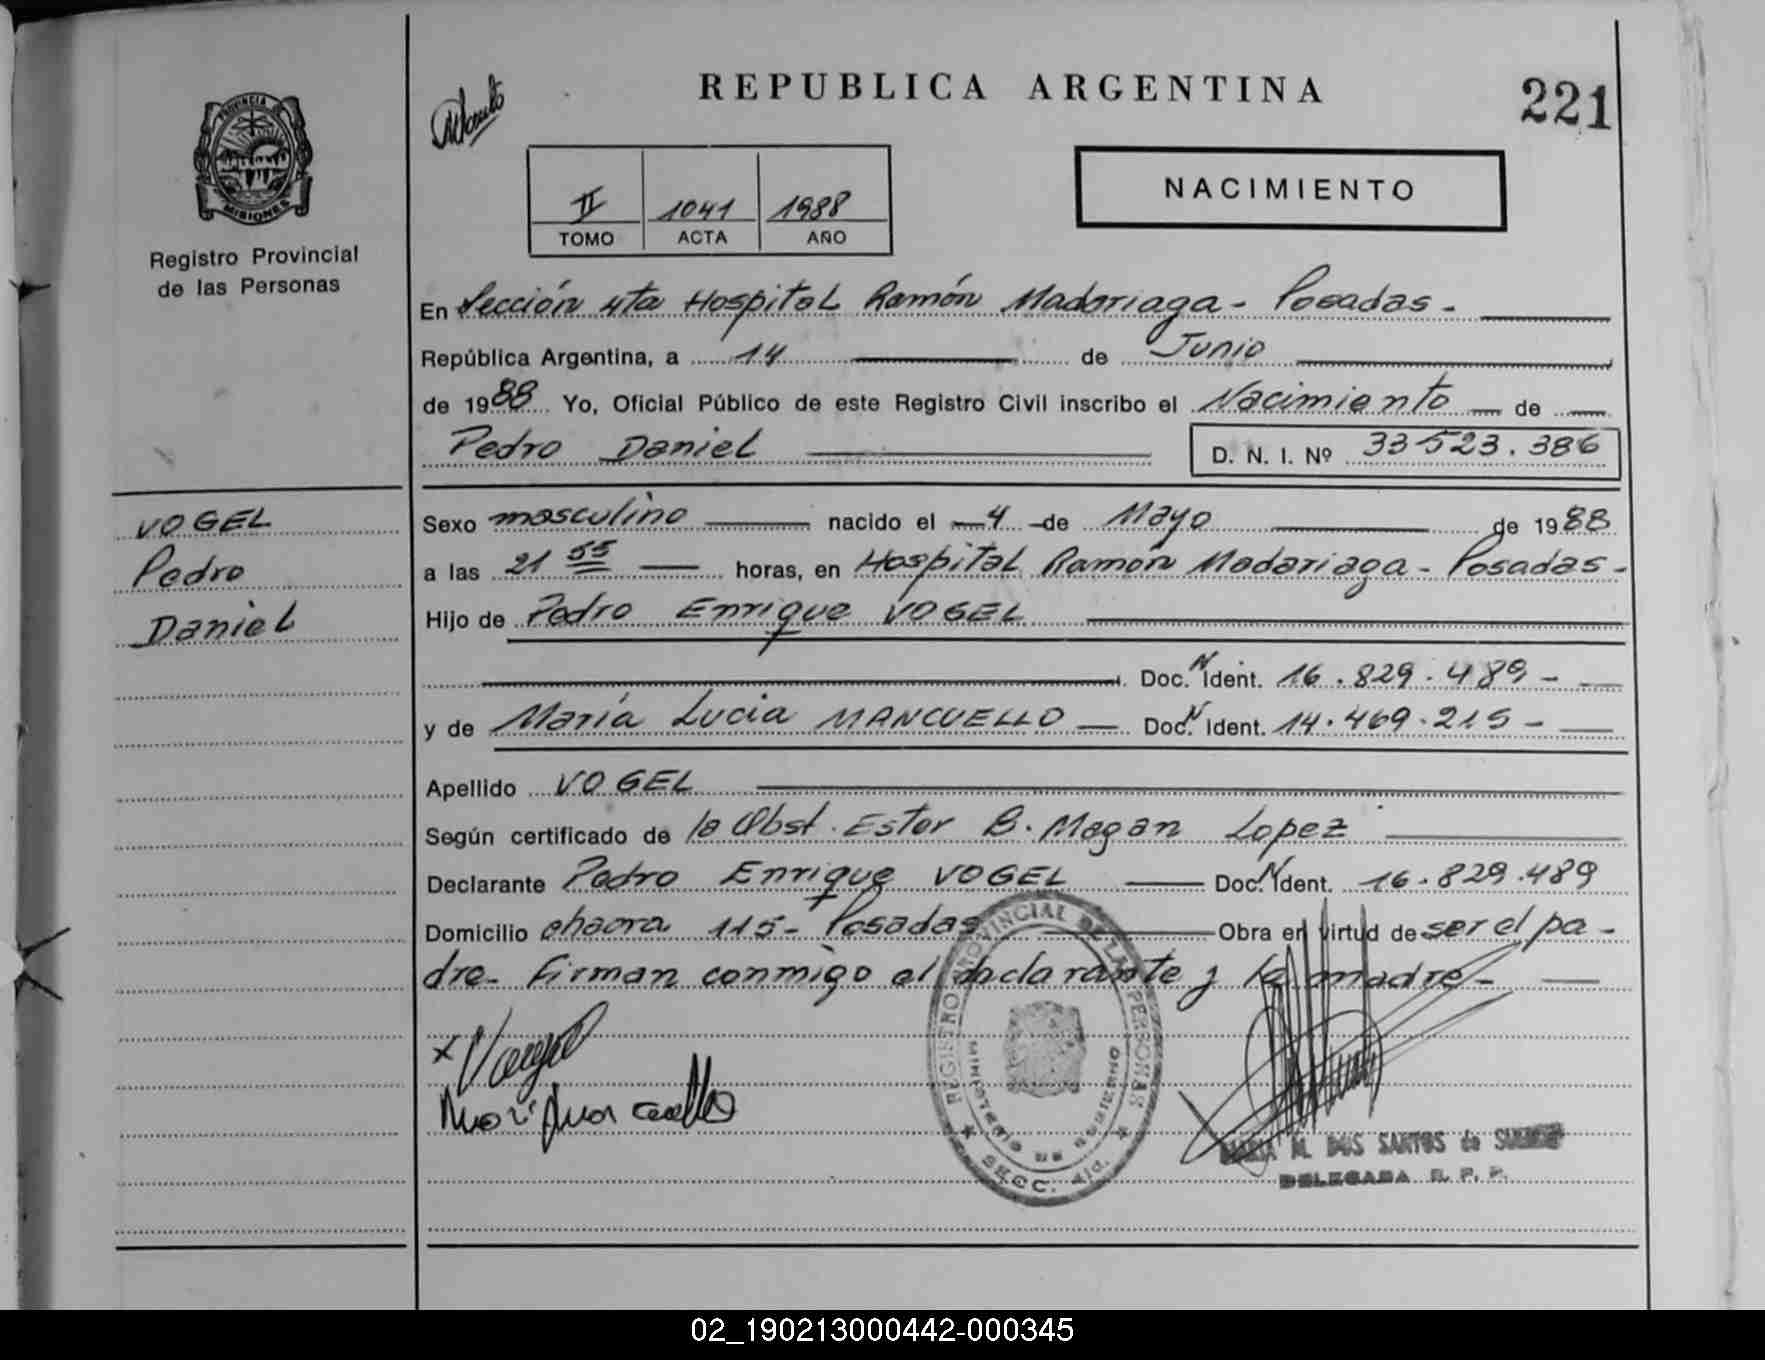 REPUBLICA ARGENTINA
221
PROVINCIA DE
MISIONES
Registro Provincial
de las Personas
II 1041 1988
TOMO ACTA AÑO
NACIMIENTO
En Sección 4ta Hospital Ramón Madariaga - Posadas.
República Argentina, a 14 de Junio
de 1988 Yo, Oficial Público de este Registro Civil inscribo el Nacimiento de
Pedro Daniel D. N. I. Nº 33523.386
VOGEL
Pedro
Daniel
Sexo masculino nacido el 4 de Mayo de 1988
a las 21 55 horas, en Hospital Ramón Madariaga - Posadas -
Hijo de Pedro Enrique VOGEL
Doc. N Ident. 16.829.489 -
y de María Lucia MANCUELLO Doc. N Ident. 14.469.215 -
Apellido VOGEL
Según certificado de la Obst. Ester B. Magan Lopez
Declarante Pedro Enrique VOGEL Doc. N Ident. 16.829.489
Domicilio chacra 115 - Posadas Obra en virtud de ser el pa -
dre - Firman conmigo el declarante y la madre -
REGISTRO PROVINCIAL DE LAS PERSONAS
MINISTERIO DE GOBIERNO
SECC. 4ta.
M. DOS SANTOS de
DELEGADA R. P. P.
02_190213000442-000345